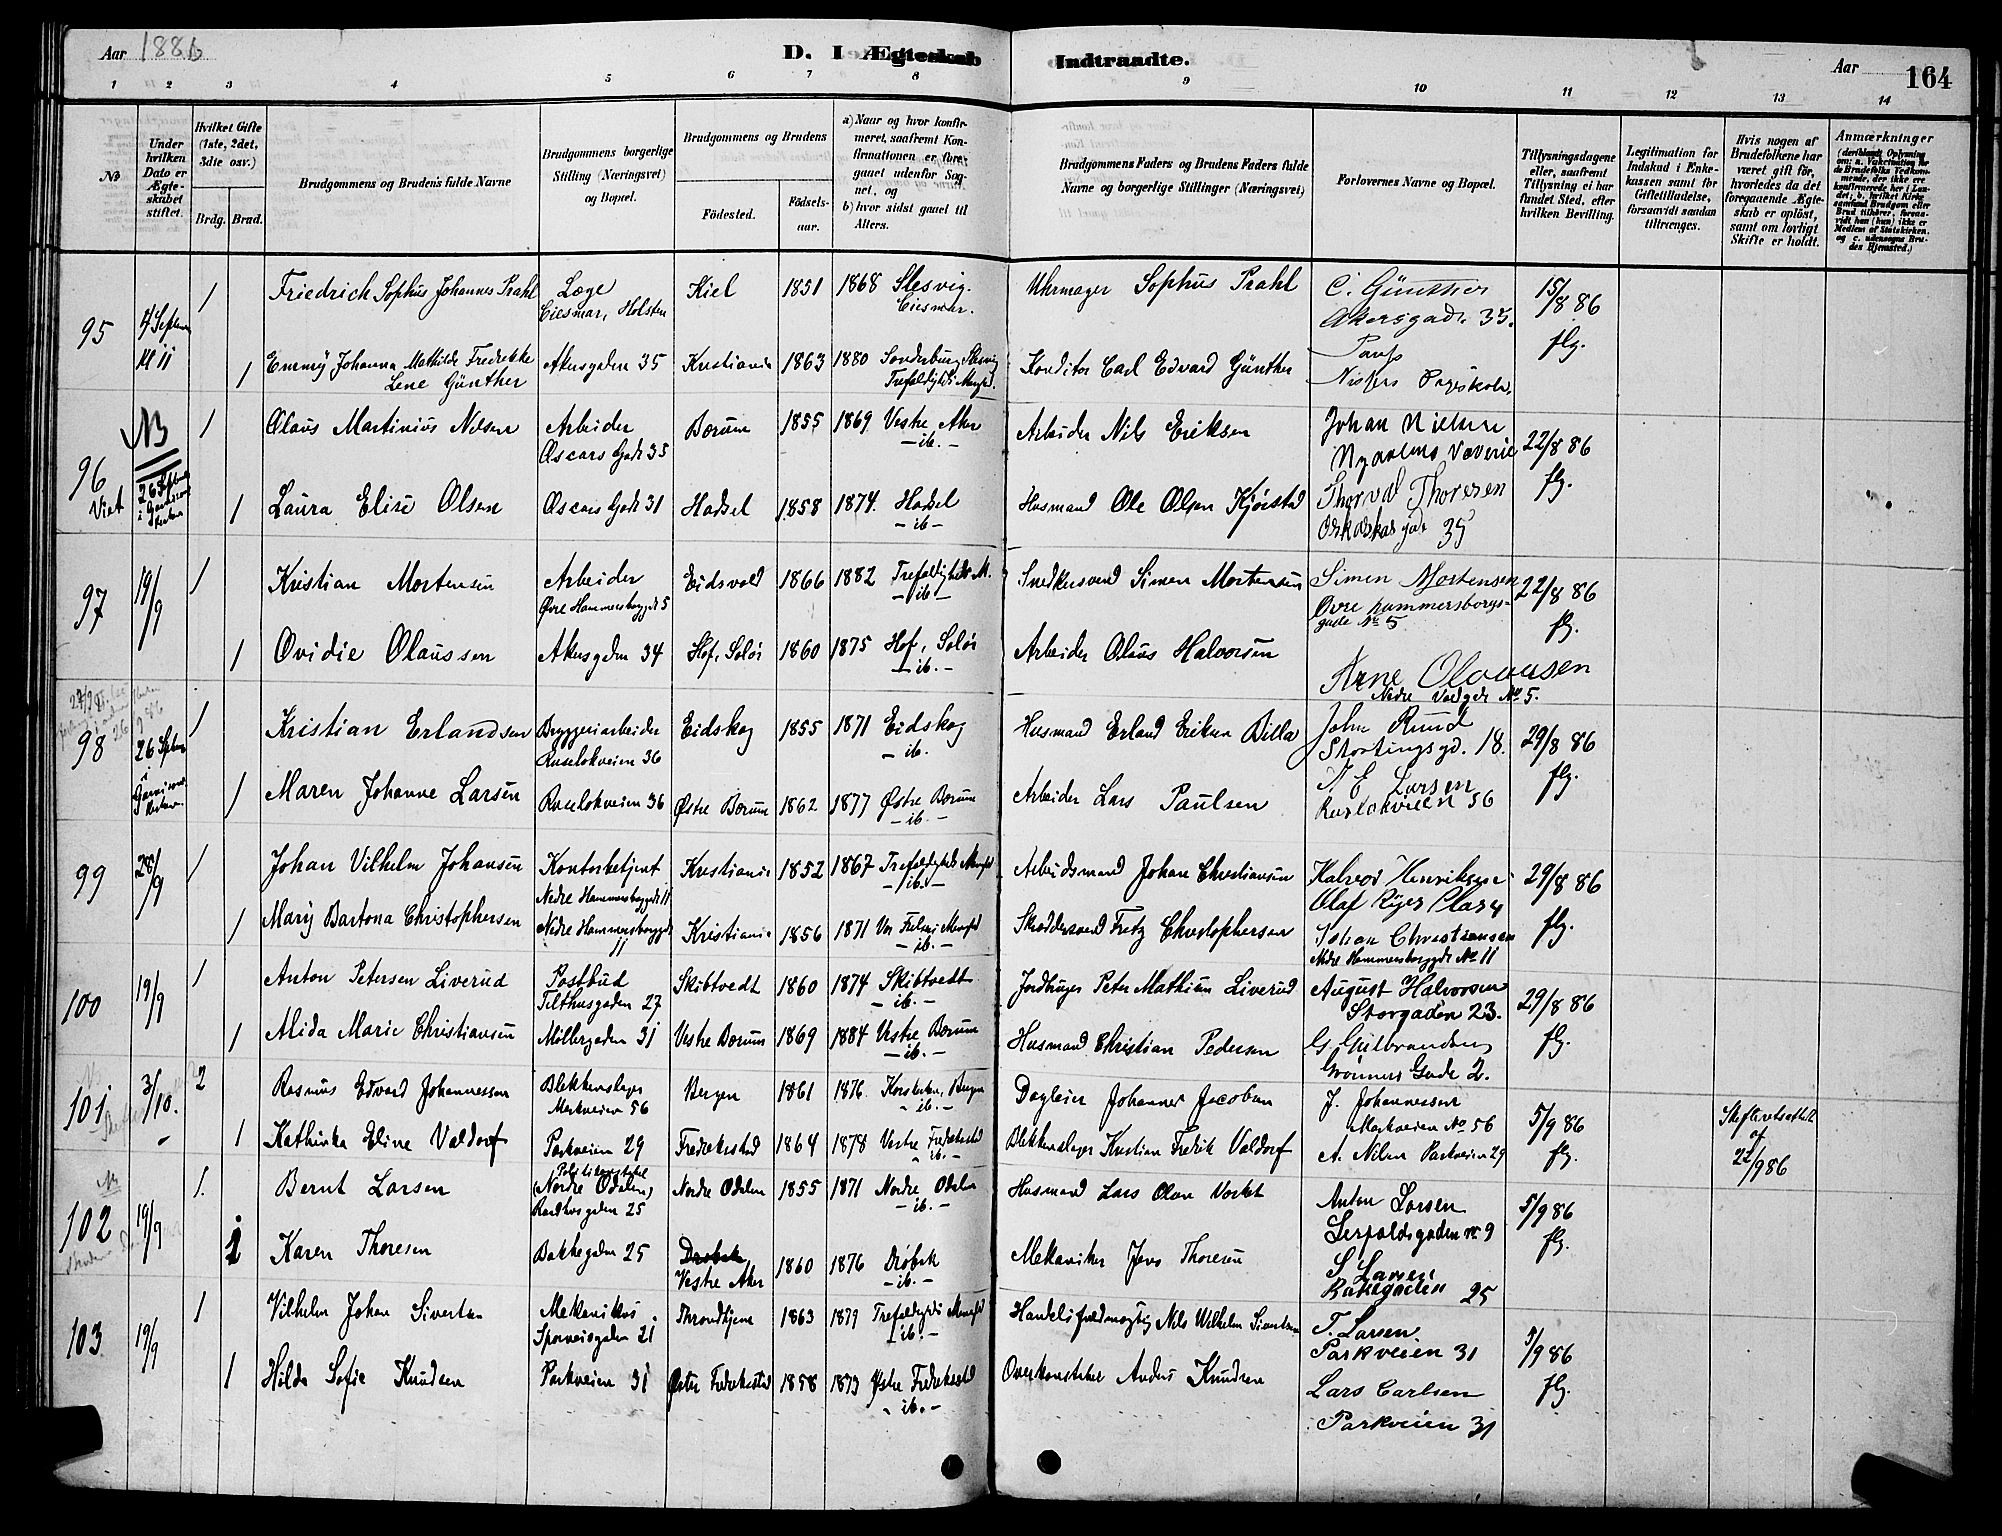 Aar 1886
D. I Ægteskab Indtraadte.
Aar
164
1 2 3 4 5 6 7 8 9 10 11 12 13 14
No
Under hvilken Dato er Ægteskabet stiftet.
Hvilket Gifte (1ste, 2det, 3die osv.)
Brdg. Brud.
Brudgommens og Brudens fulde Navne
Brudgommens borgerlige Stilling (Næringsvei) og Bopæl.
Brudgommens og Brudens
Fødested.
Fødsels-aar.
a) Naar og hvor konfirmeret, saafremt Konfirmationen er foregaaet udenfor Sognet, og
b) hvor sidst gaaet til Alters.
Brudgommens Faders og Brudens Faders fulde Navne og borgerlige Stillinger (Næringsvei)
Forlovernes Navne og Bopæl.
Tillysningsdagene eller, saafremt Tillysning ei har fundet Sted, efter hvilken Bevilling.
Legitimation for Indskud i Enkekassen samt for Giftetilladelse, forsaavidt saadan tiltrænges.
Hvis nogen af Brudefolkene har været gift før, hvorledes da det foregaaende Ægteskab er opløst, samt om lovligt Skifte er holdt.
Anmærkninger
95 1 Friedrich Sophus Johannes Prahl Læge Kiel 1851 1868 Slesvig. Uhrmager Sophus Prahl C. Günther 15/8 86
Ciesmar, Holsten Ciesmar. Akersgade 35. flg.
1 Emmy Johanna Mathilde Fredrikke Akersgaden 35 Kristiania 1863 1880 Sonderburg, Slesvig Konditor Carl Edvard Günther
Lene Günther Trefoldigheds Menighed.
NB
96 1 Olaus Martinius Nilsen Arbeider Bærum 1855 1869 Vestre Aker Arbeider Nils Eriksen Johan Nielsen 22/8 86
Oscars Gade 35 - ib. - Nydalens Væverie flg.
Viet 26 Septbr 1 Laura Elise Olsen Oscars Gade 31 Hadsel 1858 1874. Hadsel Husmand Ole Olsen Kjørstad Thorval Thoresen
- ib - 35
97 19/9 1 Kristian Mortensen Arbeider Eidsvold 1866 1882 Trefoldigheds M. Snedkersvend Simen Mortensen Simen Mortensen 22/8 86
Øvre Hammersborggd 5 - ib - Øvre hammersborgs-
gade No 5 flg.
1 Ovidie Olaussen Akersgaden 34 Hof, Solør 1860 1875 Hof, Solør Arbeider Olaus Halvorsen Arne Olaussen
- ib. - Nedre Voldgde No 5.
98 26 Septbr 1 Kristian Erlandsen Bryggeriarbeider Eidskog 1855 1871 Eidskog Husmand Erland Eriksen John Ruud 29/8 86
Ruseløkveien 36 - ib. Stortingsgd. 18. flg.
1 Maren Johanne Larsen Ruseløkveien 36 Østre Bærum 1862 1877 Østre Bærum Arbeider Lars Paulsen Larsen
- ib. - Ruseløkveien 56
99 28/9 1 Johan Vilhelm Johansen Kontorbetjent Kristiania 1852 1867 Trefoldigheds Menighed Arbeidsmand Johan Christiansen Halvor Henriksen 29/8 86
Nedre Hammersborggd 11 - ib. - Olaf Ryes Plads
1 Mary Bartona Christophersen Nedre Hammersborggd 11 Kristiania 1856 1871 Vor Frelsers Menighed Skræddersvend Fretz Christophersen Johan Christiansen flg.
- ib. - Nedre Hammersborggde No 11
100 19/9 1 Anton Petersen Liverud Postbud Skibtvedt 1860 1874 Skibtvedt Jordbruger Peter Mathisen Liverud August Halvorsen 29/8 86
Tilthusgaden 27 - ib. - Storgaden 23.
1 Alida Marie Christiansen Møllergaden 31 Vestre Bærum 1869 1884 Vestre Bærum Husmand Christian Pedersen G. Gulbrandsen flg.
- ib. - Grønners Gade 2.
101 3/10. 2 Rasmus Edvard Johannessen Blikkenslager Bergen 1861 1876. Korskirken, Bergen Dagleier Johannes Jacobsen J. Johannessen 5/9 86 Skifteretsattest
Markveien 56 - ib. - Markveien No 56 af
1 Kathinka Eline Valdorf Parkveien 29 Fredrikstad 1864 1878 Vestre Fredrikstad Blikkenslager Kristian Fredrik Valdorf A. Nilsen Parkveien 29 flg. 22/9 86
- ib. -
102 NB 19/9 1. Bernt Larsen Politikonstabel Nordre Odalen 1855 1871 Nordre Odalen Husmand Lars Olsen Anton Larsen 5/9 86
(Nordre Odalen) - ib. - No 9 flg.
Raadhusgaden 25
1 Karen Thoresen Bakkegaden 25 Drøbak 1860 1876 Drøbak Mekaniker Jens Thoresen S Larsen
Vestre Aker - ib. - Bakkegaden 25
103 19/9 1 Vilhelm Johan Sivertsen Mekanikus Throndhjem 1863 1879 Trefoldigheds Menighed Handelsfuldmægtig Nils Wilhelm Sivertsen T. Larsen. 5/9 86
Sporveisgaden 21 - ib. - Parkveien 31
1 Hilda Sofie Knudsen Parkveien 31 Østre Fredrikstad 1858 1873 Østre Fredrikstad Overkonstabel Anders Knudsen Lars Carlsen flg.
- ib. - Parkveien 31